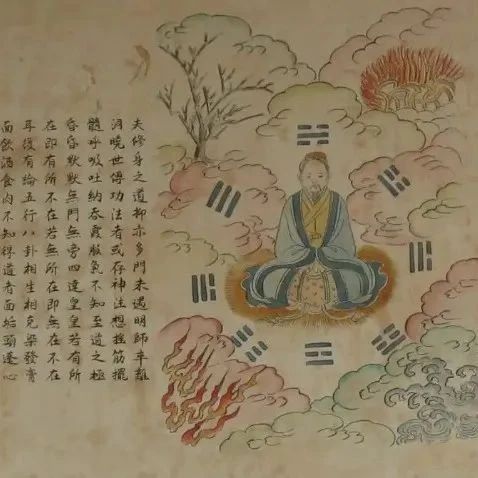 夫修身之道抑亦多門未遇明師卒難
洞曉世傳功法者或存神注想筋擺
髓呼吸吐納吞霞服氣不知至道之極
昏昏默默無門無旁四達皇皇若有所
在即有所不在若無所在即無在不在
耳復有論五行八卦相生相克染發膏
面飲酒食肉不知得道者面頭蓬心